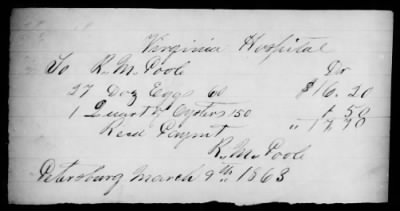 Virginia Hospital
To R. M. Poole Dr
27 Doz Eggs 60 $16.20
1 Quart of Oysters 150 1 50
Recd Paymt " 17,70
R. M. Poole
Petersburg March 9th 1863